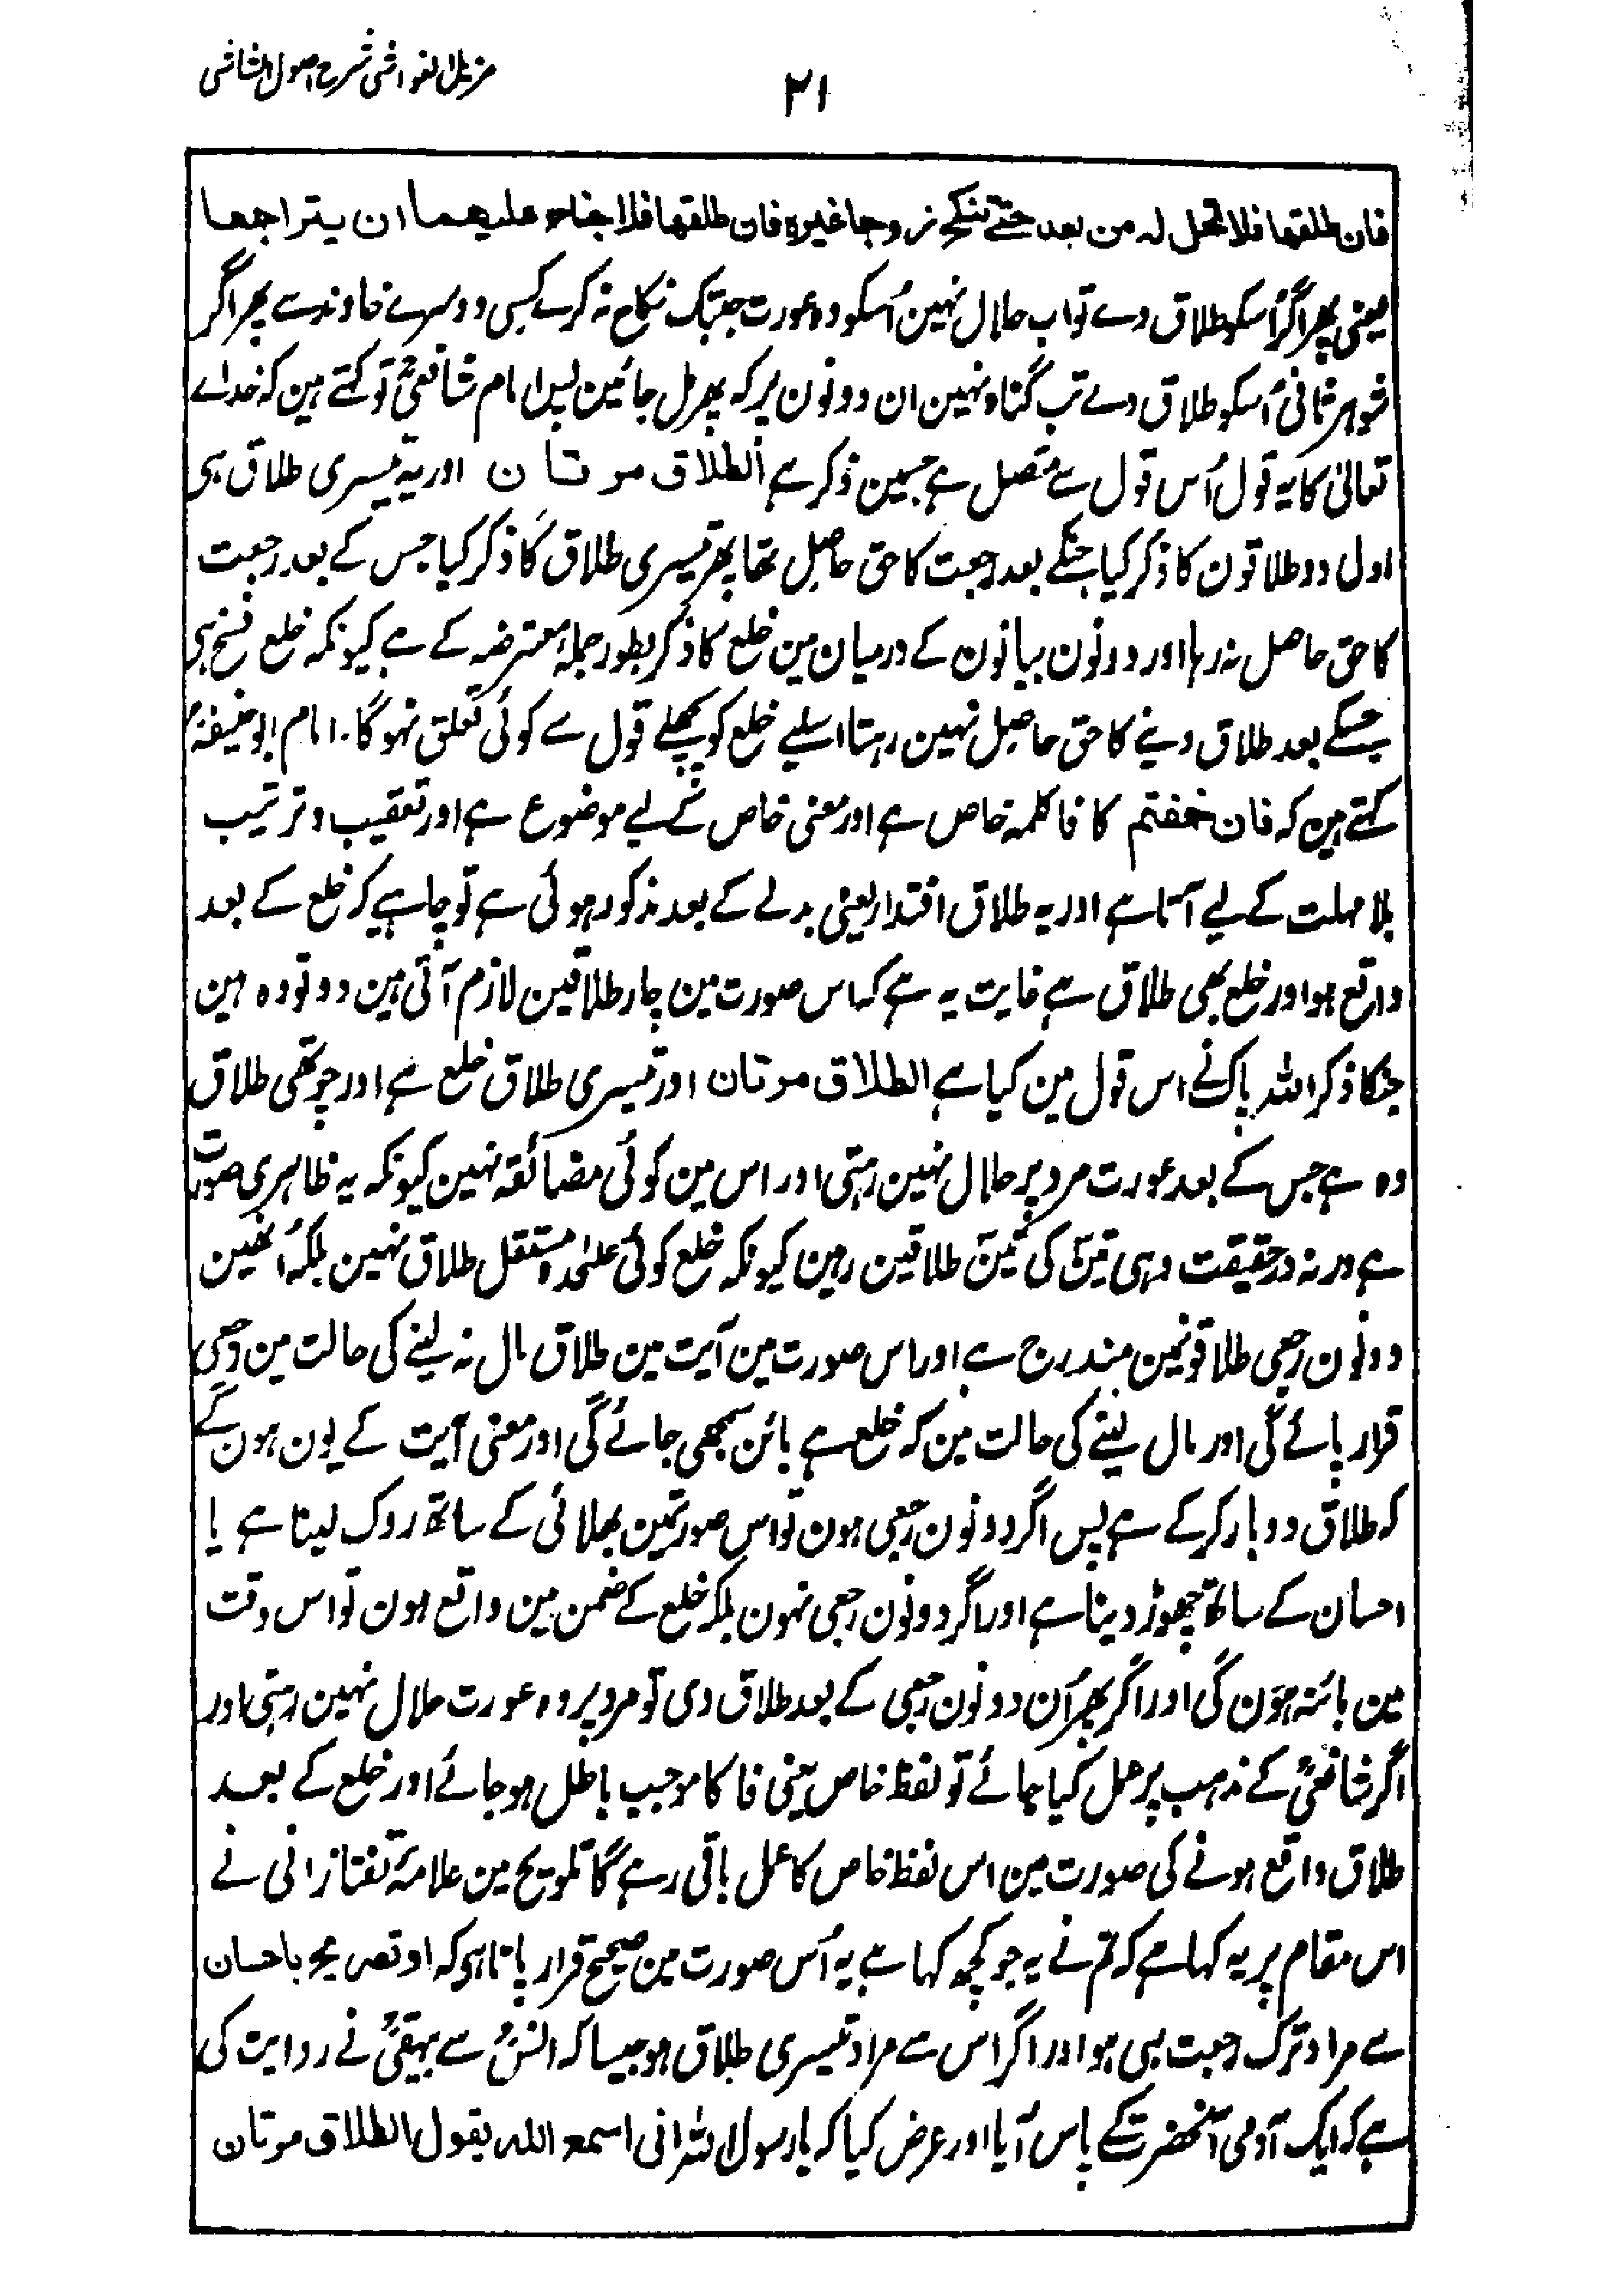 مزیل الغواشی شرح اصول الشاشی
۲۱
فان طلقها فلا تحل له من بعد حتے تنکح زوجا غیره فان طلقها فلا جناح علیهما ان یتراجعا
یعنی پھر اگر اُسکو طلاق دے تو اب حلال نہین اُسکو وہ عورت جبتک نکاح نہ کرے کسی دوسرے خاوند سے پھر اگر
شوہر ثانی اُسکو طلاق دے تب گناہ نہین ان دونون پر کہ پھر مل جائین پس امام شافعیؒ تو کہتے ہین کہ خداے
تعالیٰ کا یہ قول اُس قول سے متصل ہے جسمین ذکر ہے الطلاق مرتان اور یہ تیسری طلاق ہی
اول دو طلاقون کا ذکر کیا جنکے بعد رجعت کا حق حاصل تھا پھر تیسری طلاق کا ذکر کیا جس کے بعد رجعت
کا حق حاصل نہ رہا اور دونون بیانون کے درمیان مین خلع کا ذکر بطور جملۂ معترضہ کے ہے کیونکہ خلع فسخ ہی
جسکے بعد طلاق دینے کا حق حاصل نہین رہتا اسلیے خلع کو پچھلے قول سے کوئی تعلق نہوگا۔ امام ابو حنیفہؒ
کہتے ہین کہ فان خفتم کا فا کلمہ خاص ہے اور معنی خاص کے لیے موضوع ہے اور تعقیب و ترتیب
بلا مہلت کے لیے آتا ہے اور یہ طلاق افتدا یعنی بدلے کے بعد مذکور ہوئی ہے تو چاہیے کہ خلع کے بعد
واقع ہو اور خلع بھی طلاق ہے غایت یہ ہے کہ اس صورت مین چار طلاقین لازم آتی ہین دو تو وہ ہین
جنکا ذکر اللہ پاک نے اس قول مین کیا ہے الطلاق مرتان اور تیسری طلاق خلع ہے اور چوتھی طلاق
وہ ہے جس کے بعد عورت مرد پر حلال نہین رہتی اور اس مین کوئی مضائقہ نہین کیونکہ یہ ظاہری صورت
ہے ورنہ درحقیقت وہی تین کی تین طلاقین رہین کیونکہ خلع کوئی علٰحدہ مستقل طلاق نہین بلکہ اُنھین
دونون رجعی طلاقونمین مندرج ہے اور اس صورت مین آیت مین طلاق مال نہ لینے کی حالت مین رجعی
قرار پائے گی اور مال لینے کی حالت مین کہ خلع ہے بائن سمجھی جائے گی اور معنی آیت کے یون ہون گے
کہ طلاق دو بار کرکے ہے پس اگر دونون رجعی ہون تو اس صورتمین بھلائی کے ساتھ روک لینا ہے یا
احسان کے ساتھ چھوڑ دینا ہے اور اگر دونون رجعی نہون بلکہ خلع کے ضمن مین واقع ہون تو اس وقت
مین بائنہ ہون گی اور اگر پھر اُن دونون رجعی کے بعد طلاق دی تو مرد پر وہ عورت حلال نہین رہتی اور
اگر شافعیؒ کے مذہب پر عمل کیا جائے تو لفظ خاص یعنی فا کا موجب باطل ہو جائے اور خلع کے بعد
طلاق واقع ہونے کی صورت مین اس لفظ خاص کا عمل باقی رہے گا تلویح مین علامۂ تفتازانی نے
اس مقام پر یہ کہا ہے کہ تم نے یہ جو کچھ کہا ہے یہ اُس صورت مین صحیح قرار پاتا ہی کہ او تصریح باحسان
سے مراد ترک رجعت ہی ہو اور اگر اس سے مراد تیسری طلاق ہو جیسا کہ انسؓ سے بیہقیؒ نے روایت کی
ہے کہ ایک آدمی آنحضرت کے پاس آیا اور عرض کیا کہ یا رسول اللہ انی اسمع الله یقول الطلاق مرتان